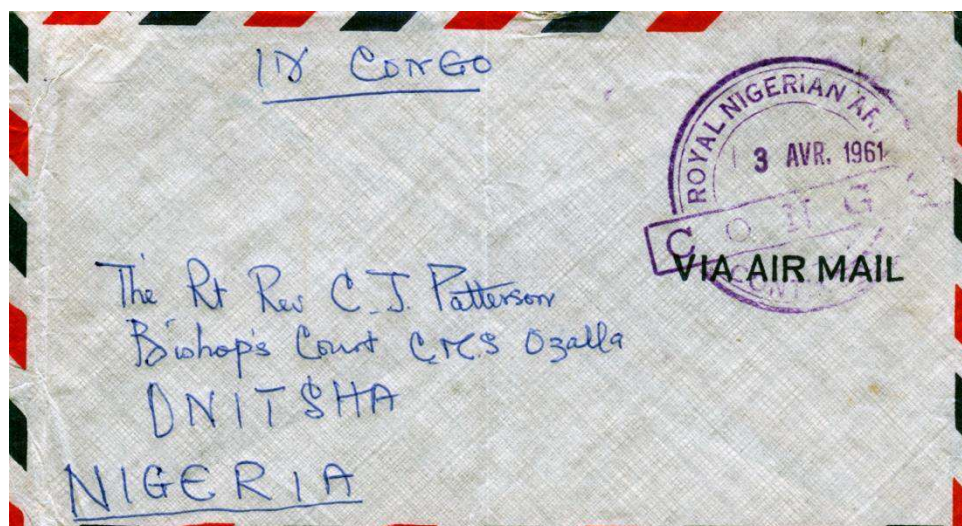 IN CONGO
ROYAL NIGERIAN
3 AVR. 1961
CONGO
VIA AIR MAIL
The Rt Rev C. J. Patterson
Bishop's Court C.M.S Ozalla
ONITSHA
NIGERIA